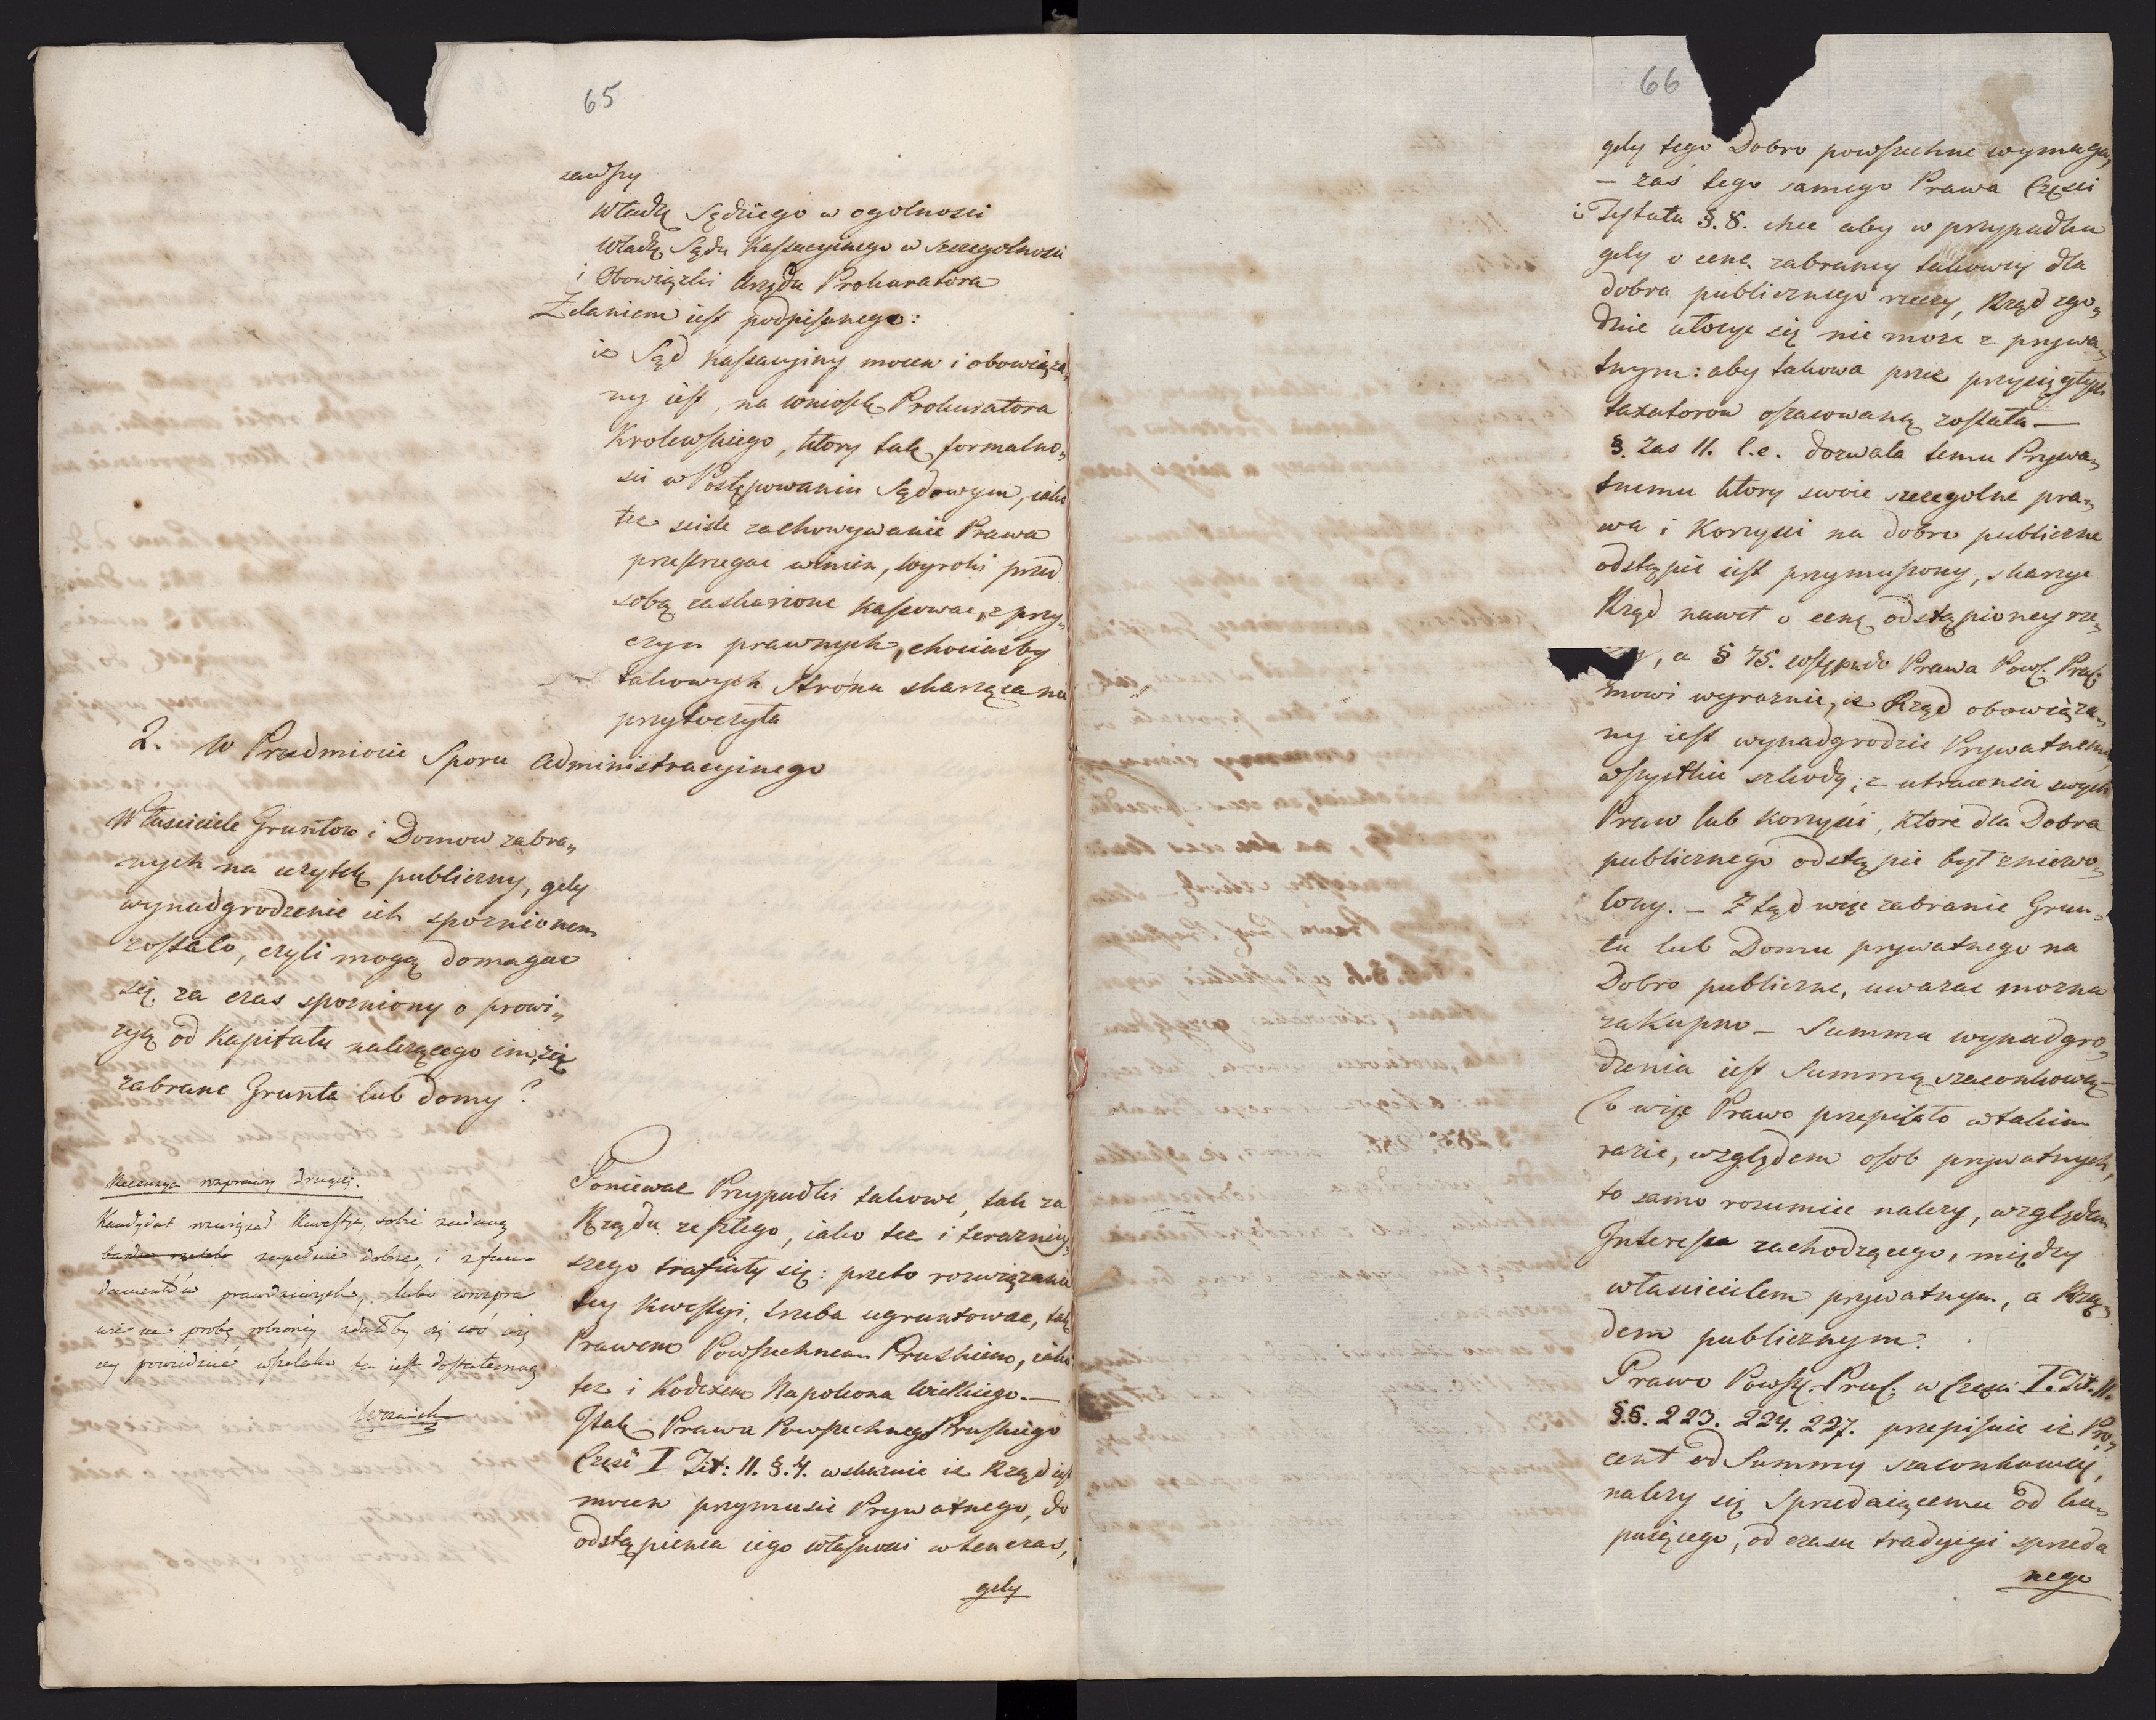 65
zawszy
Władzę Sędziego w ogolnosci
Władzę Sądu Kassacyinego w szczegolnosci
i Obowiązki Urzędu Prokuratora
Zdaniem iest podpisanego:
iż Sąd Kassacyiny mocen i obowiąza„
ny iest, na wniosek Prokuratora
Krolewskiego, ktory tak formalno„
sci w Postępowaniu Sądowym, iako
tez scisłe zachowywanie Prawa
przestrzegac winien, wyroki przed
sobą zaskarzone kassowac, z przy„
czyn prawnych, chociazby
takowych Strona skarząca nie
przytoczyła
2. W Przedmiocie Sporu Administracyinego
Właściciele Gruntow i Domow zabra„
nych na uzytek publiczny, gdy
wynadgrodzenie ich spoznionem
zostało, czyli mogą domagac
się za czas spozniony o prowi„
zyą od Kapitału nalezącego im, za
zabrane Grunta lub domy?
Recenzya rozprawy drugiej.
Kandydat rozwiązał Kwestyą sobie zadaną
zupełnie dobrze, i z fun-
damentów prawdziwych, lubo w rozpra
wie na probę robioney zdałby się coś wię
cey powiedzieć wszelako ta iest dostateczną
Poniewaz Przypadki takowe, tak za
Rządu zeszłego, iako tez i terazniey„
szego trafiały się: przeto rozwiązanie
tey Kwestyi, trzeba ugruntowac, tak
Prawem Powszechnem Pruskiem, iako
tez i Kodexem Napoleona Wielkiego.—
I tak Prawa Powszechnego Pruskiego
Część I Tit: 11. §. 4. wskazuie iz Rząd iest
mocen przymusic Prywatnego, do
odstąpienia iego własnosci w ten czas,
gdy
66
gdy tego Dobro powszechne wymaga,
— zas tego samego Prawa Części
i Tytułu §. 8. chce aby w przypadku
gdy o cenę zabraney takowey dla
dobra publicznego rzeczy, Rząd zgo„
dnie ułozyc się nie moze z prywa„
tnym: aby takowa przez przysięgłych
taxatorow oszacowaną została—
§. zas 11. l.c. dozwala temu Prywa„
tnemu ktory swoie szczegolne pra„
wa i Korzysci na dobro publiczne
odstąpic iest przymuszony, skarzyc
Rząd nawet o cenę odstąpioney rze„
, a § 75. wstępu do Prawa Pow. Prus.
mowi wyraznie, iz Rząd obowiąza„
ny iest wynadgrodzic Prywatnemu
wszystkie szkody, z utracenia swych
Praw lub korzysci, ktore dla Dobra
publicznego odstąpic był zniewo„
lony. — Z tąd więc zabranie Grun„
tu lub Domu prywatnego na
Dobro publiczne, uwazac mozna
za Kupno — Summa wynadgro„
dzenia iest Summą szacunkową—
Co więc Prawo przepisało w takim
razie, względem osob prywatnych,
to samo rozumiec nalezy, względem
Interessu zachodzącego, między
właścicielem prywatnym, a Rzą„
dem publicznym.
Prawo Powsz. Prus: w Części I. Tit. 11.
§.§. 223. 224. 227. przepisuie iz Pro„
cent od Summy szacunkowey,
nalezy się Sprzedaiącemu od ku„
puiącego, od czasu tradycyi sprzeda
nego